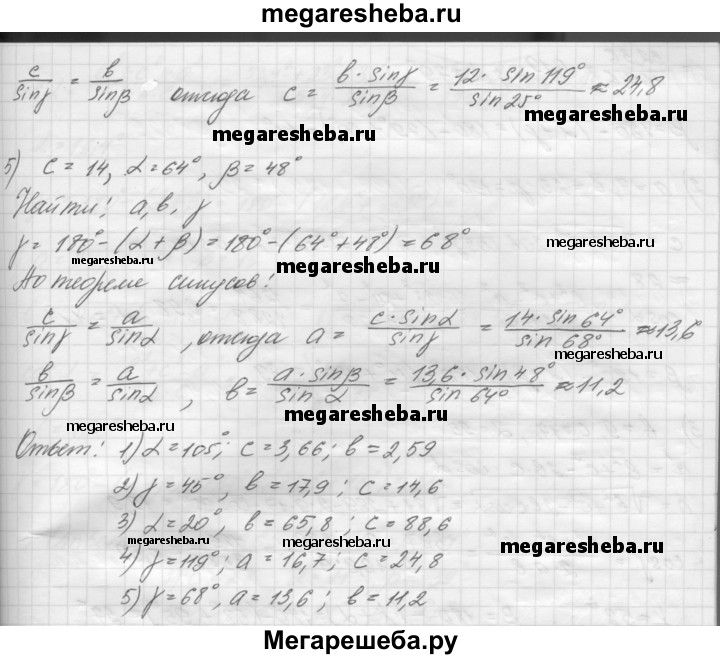 megaresheba.ru
c/sinγ = b/sinβ откуда c = b·sinγ/sinβ = 12·sin119°/sin25° ≈ 24,8
megaresheba.ru megaresheba.ru
5) c = 14, α = 64°, β = 48°
megaresheba.ru
Найти: a, b, γ
γ = 180° − (α + β) = 180° − (64° + 48°) = 68°
megaresheba.ru
По теореме синусов:
megaresheba.ru
c/sinγ = a/sinα, откуда a = c·sinα/sinγ = 14·sin64°/sin68° ≈ 13,6
megaresheba.ru
b/sinβ = a/sinα, b = a·sinβ/sinα = 13,6·sin48°/sin64° ≈ 11,2
megaresheba.ru
megaresheba.ru
Ответ: 1) α = 105°; c = 3,66; b = 2,59
2) γ = 45°, b = 17,9; c = 14,6
3) α = 20°, b = 65,8; c = 88,6
megaresheba.ru megaresheba.ru megaresheba.ru
4) γ = 119°; a = 16,7; c = 24,8
5) γ = 68°, a = 13,6; b = 11,2
Мегарешеба.ру